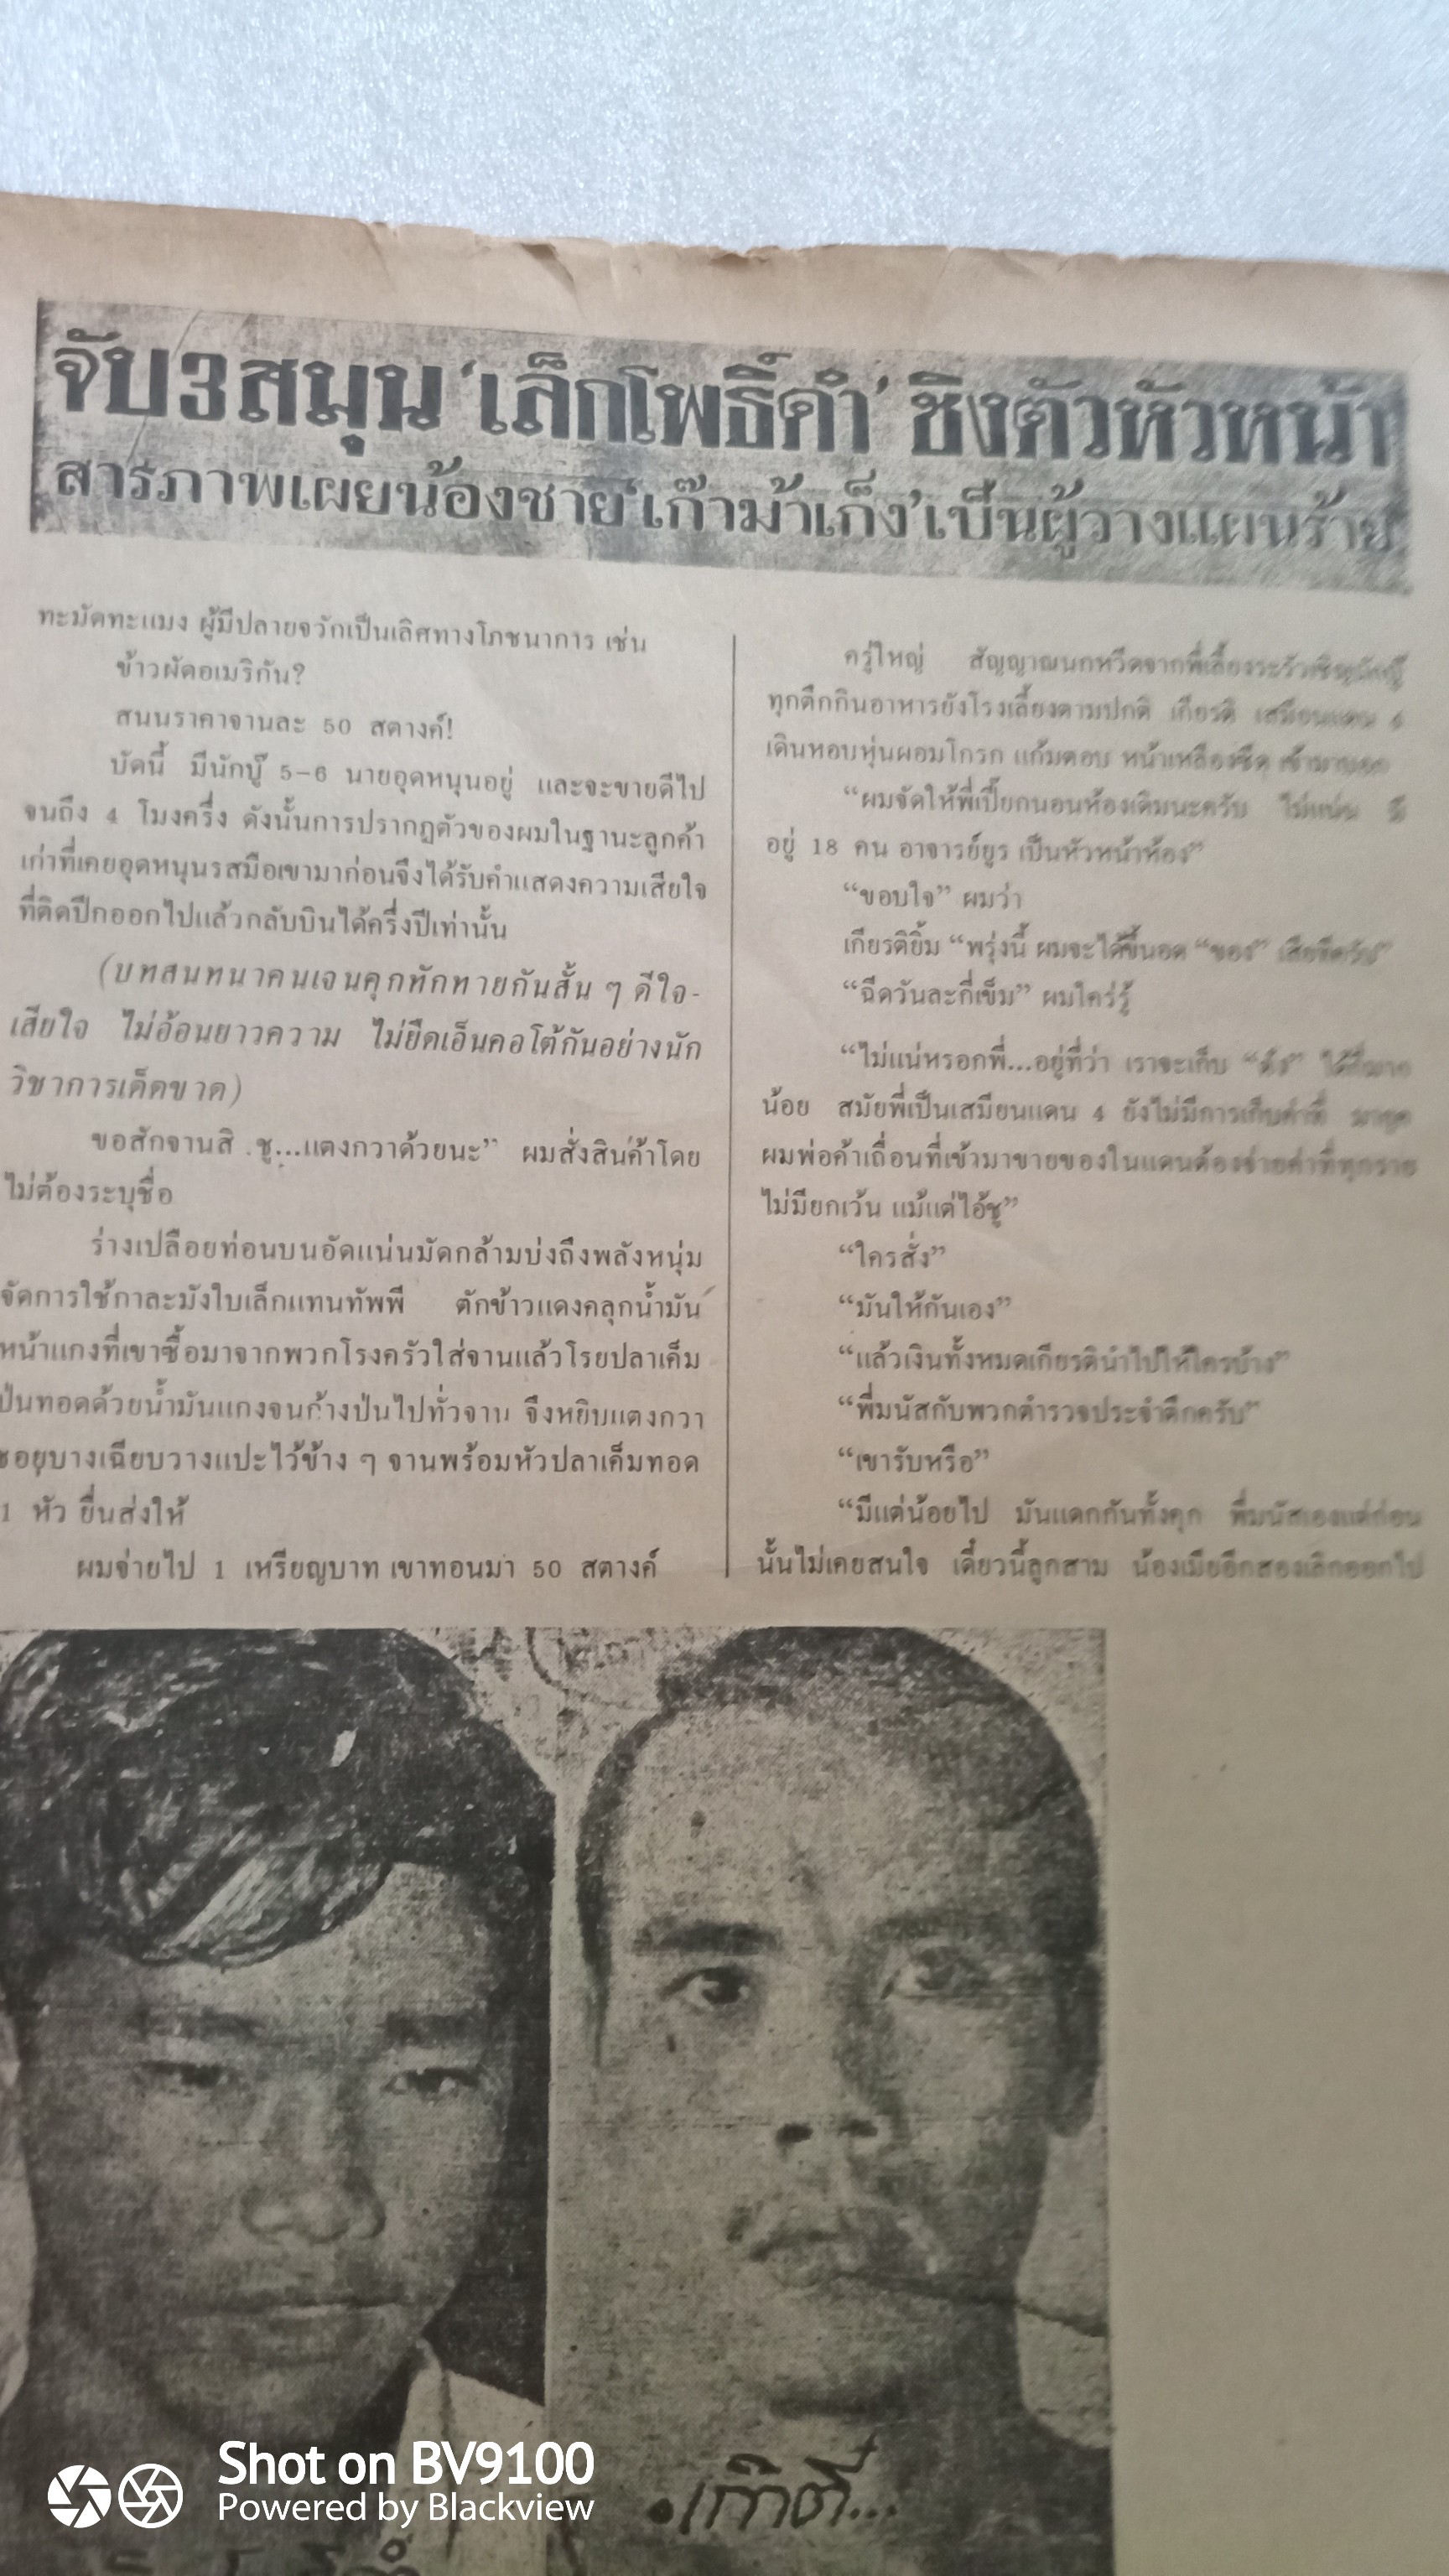 จับ3สมุน 'เล็กโพธิ์ดำ' ชิงตัวหัวหน้า
สารภาพเผยน้องชาย'เก๊าม้าเก็ง'เป็นผู้วางแผนร้าย
ทะมัดทะแมง ผู้มีปลายจวักเป็นเลิศทางโภชนาการ เช่น
ข้าวผัดอเมริกัน?
สนนราคาจานละ 50 สตางค์!
บัดนี้ มีนักบู๊ 5-6 นายอุดหนุนอยู่ และจะขายดีไป
จนถึง 4 โมงครึ่ง ดังนั้นการปรากฏตัวของผมในฐานะลูกค้า
เก่าที่เคยอุดหนุนรสมือเขามาก่อนจึงได้รับคำแสดงความเสียใจ
ที่ติดปีกออกไปแล้วกลับบินได้ครึ่งปีเท่านั้น
(บทสนทนาคนเจนคุกทักทายกันสั้น ๆ ดีใจ-
เสียใจ ไม่อ้อนยาวความ ไม่ยืดเอ็นคอโต้กันอย่างนัก
วิชาการเด็ดขาด)
ขอสักจานสิ ชู...แตงกวาด้วยนะ” ผมสั่งสินค้าโดย
ไม่ต้องระบุชื่อ
ร่างเปลือยท่อนบนอัดแน่นมัดกล้ามบ่งถึงพลังหนุ่ม
จัดการใช้กาละมังใบเล็กแทนทัพพี ตักข้าวแดงคลุกน้ำมัน
หน้าแกงที่เขาซื้อมาจากพวกโรงครัวใส่จานแล้วโรยปลาเค็ม
ป่นทอดด้วยน้ำมันแกงจนก้างป่นไปทั่วจาน จึงหยิบแตงกวา
ซอยบางเฉียบวางแปะไว้ข้าง ๆ จานพร้อมหัวปลาเค็มทอด
1 หัว ยื่นส่งให้
ผมจ่ายไป 1 เหรียญบาท เขาทอนมา 50 สตางค์
ครู่ใหญ่ สัญญาณนกหวีดจากพี่เลี้ยง
ทุกตึกกินอาหารยังโรงเลี้ยงตามปกติ เกียรติ เสมียนแดน 4
เดินหอบหุ่นผอมโกรก แก้มตอบ หน้าเหลืองซีด เข้ามา
“ผมจัดให้พี่เปี๊ยกนอนห้องเดิมนะครับ ไม่แน่น มี
อยู่ 18 คน อาจารย์ยูร เป็นหัวหน้าห้อง”
“ขอบใจ” ผมว่า
เกียรติยิ้ม “พรุ่งนี้ ผมจะได้ขึ้นอด “ของ”
“ฉีดวันละกี่เข็ม” ผมใคร่รู้
“ไม่แน่หรอกพี่...อยู่ที่ว่า เราจะเก็บ “ตัง” ได้
น้อย สมัยพี่เป็นเสมียนแดน 4 ยังไม่มีการเก็บค่าที่
ผมพ่อค้าเถื่อนที่เข้ามาขายของในแดนต้องจ่ายค่าที่ทุกราย
ไม่มียกเว้น แม้แต่ไอ้ชู”
“ใครสั่ง”
“มันให้กันเอง”
“แล้วเงินทั้งหมดเกียรตินำไปให้ใครบ้าง”
“พี่มนัสกับพวกตำรวจประจำตึกครับ”
“เขารับหรือ”
“มีแต่น้อยไป มันแดกกันทั้งคุก พี่มนัสเองแต่ก่อน
นั้นไม่เคยสนใจ เดี๋ยวนี้ลูกสาม น้องเมียอีกสองเลิกออกไป
เก๊าตี๋...
Shot on BV9100
Powered by Blackview